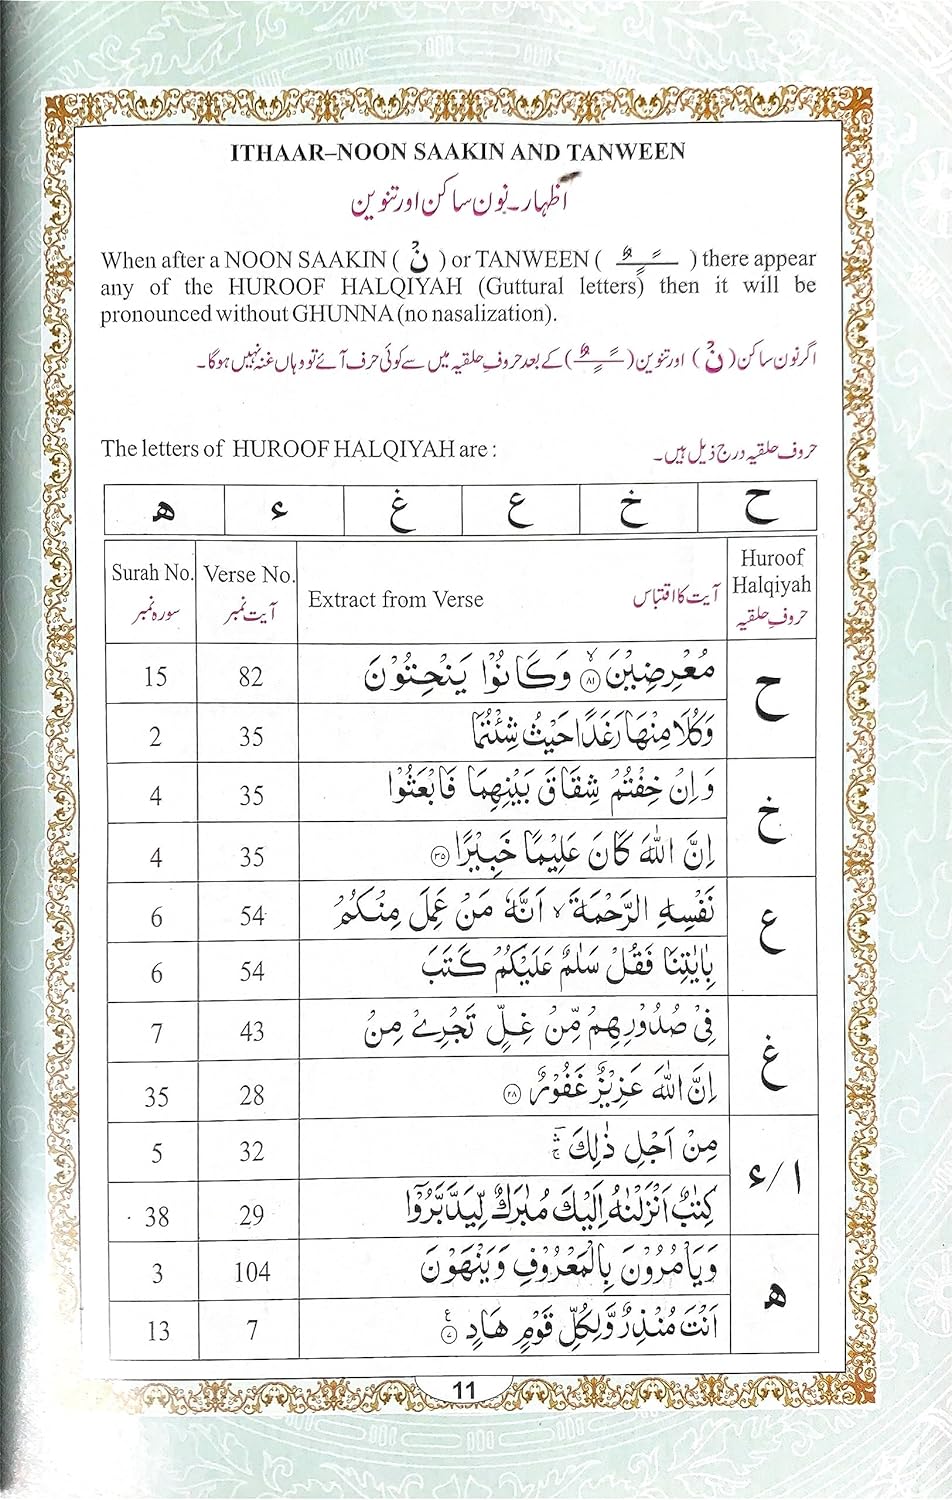 ITHAAR–NOON SAAKIN AND TANWEEN
اظہار۔نون ساکن اور تنوین
When after a NOON SAAKIN ( نْ ) or TANWEEN ( ــًــٍــٌ ) there appear
any of the HUROOF HALQIYAH (Guttural letters) then it will be
pronounced without GHUNNA (no nasalization).
اگر نون ساکن (نْ) اور تنوین (ــًــٍــٌ) کے بعد حروفِ حلقیہ میں سے کوئی حرف آئے تو وہاں غنہ نہیں ہوگا۔
The letters of HUROOF HALQIYAH are : حروف حلقیہ درج ذیل ہیں۔
ح خ ع غ ء ھ
Surah No. Verse No. Extract from Verse آیت کا اقتباس Huroof Halqiyah
سورہ نمبر آیت نمبر حروفِ حلقیہ
15 82 مُعْرِضِيْنَ ۙ‏﴿۸۱﴾ وَكَانُوْا يَنْحِتُوْنَ ح
2 35 وَكُلَا مِنْهَا رَغَدًا حَيْثُ شِئْتُمَا
4 35 وَاِنْ خِفْتُمْ شِقَاقَ بَيْنِهِمَا فَابْعَثُوْا خ
4 35 اِنَّ اللّٰهَ كَانَ عَلِيْمًا خَبِيْرًا ﴿۳۵﴾
6 54 نَفْسِهِ الرَّحْمَةَ ۙ اَنَّهٗ مَنْ عَمِلَ مِنْكُمْ ع
6 54 بِاٰيٰتِنَا فَقُلْ سَلٰمٌ عَلَيْكُمْ كَتَبَ
7 43 فِيْ صُدُوْرِهِمْ مِّنْ غِلٍّ تَجْرِيْ مِنْ غ
35 28 اِنَّ اللّٰهَ عَزِيْزٌ غَفُوْرٌ ﴿۲۸﴾
5 32 مِنْ اَجْلِ ذٰلِكَ ا/ء
38 29 كِتٰبٌ اَنْزَلْنٰهُ اِلَيْكَ مُبٰرَكٌ لِّيَدَّبَّرُوْٓا
3 104 وَيَاْمُرُوْنَ بِالْمَعْرُوْفِ وَيَنْهَوْنَ ھ
13 7 اَنْتَ مُنْذِرٌ وَّلِكُلِّ قَوْمٍ هَادٍ ﴿۷﴾
11